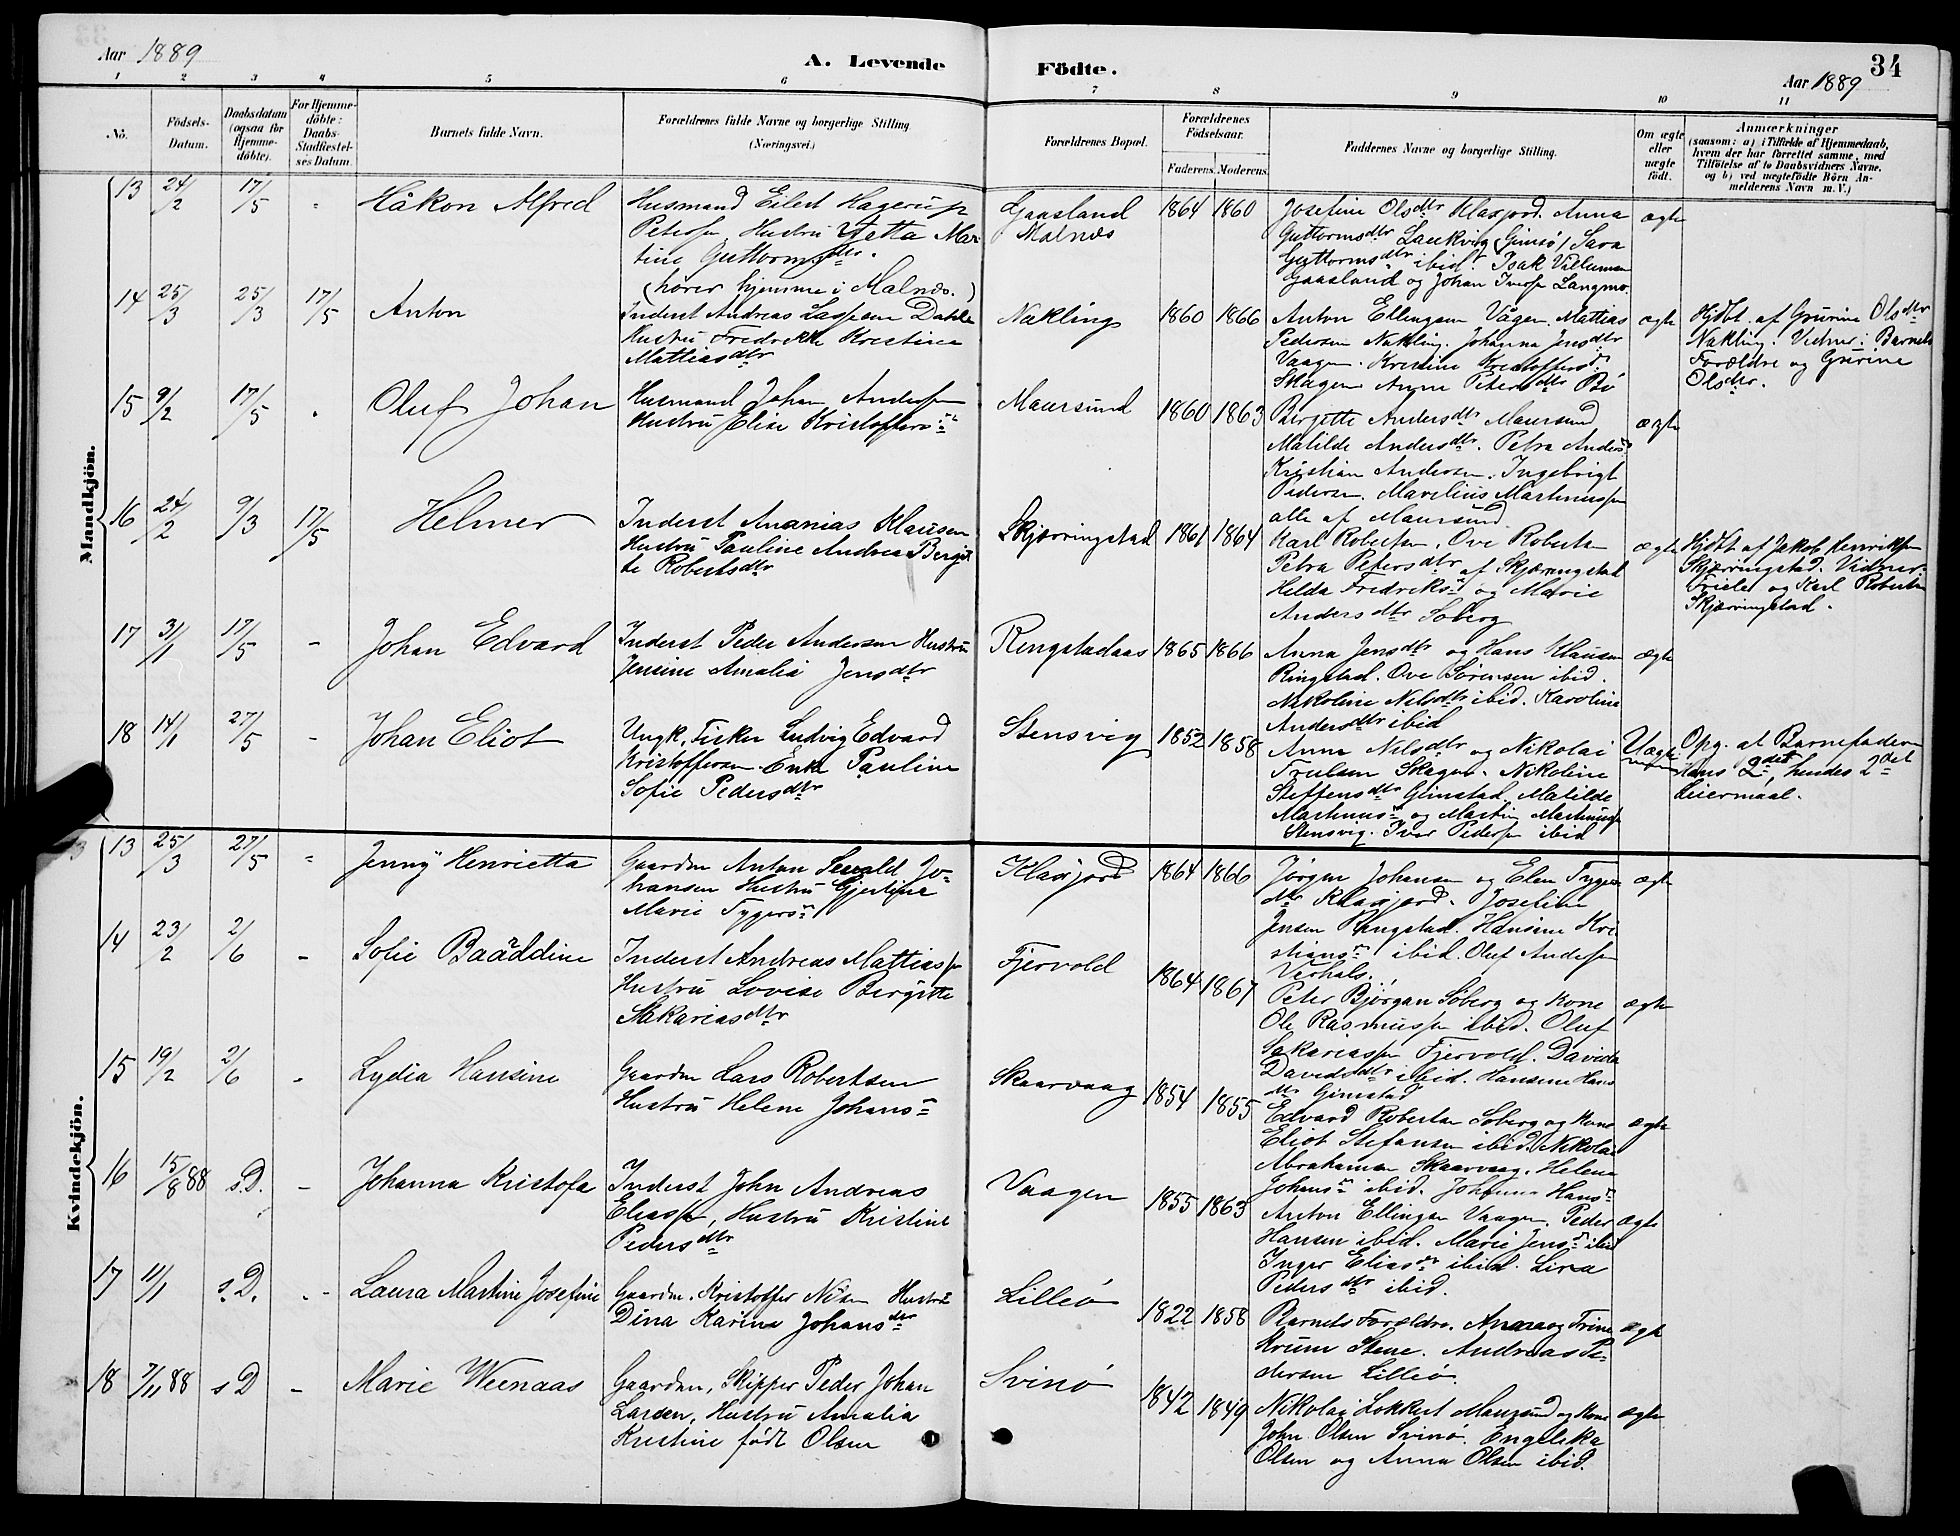 Aar 1889
A. Levende Födte.
34
Aar 1889
1 2 3 4 5 6 7 8 9 10 11
No.
Födsels-Datum.
Daabsdatum (ogsaa for Hjemme-döbte).
For Hjemme-döbte: Daabs-Stadfæstel-ses Datum.
Barnets fulde Navn.
Forældrenes fulde Navne og borgerlige Stilling (Næringsvei.)
Forældrenes Bopæl.
Forældrenes Födselsaar.
Faderens. Moderens.
Faddernes Navne og borgerlige Stilling.
Om ægte eller uægte födt.
Anmærkninger
(saasom: a) i Tilfælde af Hjemmedaab, hvem der har forrettet samme, med Tilföielse af to Daabsvidners Navne. og b) ved uægtefödte Börn An-melderens Navn m. V.)
Mandkjön.
13 24/2 17/5 - Håkon Alfred
Husmand Eilert Hagerup
Peters, Hustru Jetta Mar
tine Guttormsdtr.
(hører hjemme i Malnæs.)
Gaasland
Malnæs
1864 1860
Josefine Olsdtr Klaxjord. Anna
Guttormsdtr Laukvig (Gimsö) Sara
Guttormsdtr ibid. Isak Villumsen
Gaasland og Johan Iversen Langmo.
ægte
14 25/3 25/3 17/5 Anton
Inderst Andreas Lassesen Dahle
Hustru Fredrikke Kristina
Mattiasdtr
Nakling
1860 1866
Anton Ellingsen Vågen. Mattias
Pedersen Nakling. Johanna Jensdtr
Vaagen. Kristine Kristoffersd.
Skagen Anne Petersdtr Bö
ægte
Hjdbt af Gurine Olsdtr
Nakling. Vidner: Barnets
Forældre og Gurine
Olsdtr.
15 9/2 17/5 - Oluf Johan
Husmand Johan Anders
Hustru Elise Kristoffersdtr
Maursund
1860 1863
Bergitte Andersdtr Maursund
Matilde Andersdtr. Petra Andersdtr
Kristian Andersen. Ingebrigt
Pedersen. Marelius Martinussen
alle af Maursund
ægte
16 24/2 9/3 17/5 Helmer
Inderst Ananias Klausen
Hustru Pauline Andrea Bergit
te Robertsdtr
Skjærringstad
1861 1864
Karl Robertsen, Ove Robertsen
Petra Petersdtr af Skjærringstad
Helda Fredriksd og Marie
Andersdtr Söberg
ægte
Hjdbt af Jakob Henriksen
Skjærringstad. Vidner:
og Karl Robertsen
Skjærringstad.
17 31/1 17/5 - Johan Edvard
Inderst Peder Andersen Hustru
Jensine Amalia Jensdtr
Ringstadaas
1865 1866
Anna Jensdtr og Hans Klausen
Ringstad. Ove Sörensen ibid.
Nikoline Nilsdtr ibid. Karoline
Andersdtr ibid
ægte
18 14/1 27/5 - Johan Eliot
Ungk. Fisker Ludvig Edvard
Kristoffersen. Enke Pauline
Sofie Pedersdtr
Stensvig
1852 1858
Anna Nilsdtr og Nikolai
Trulsen Skagen. Nikoline
Steffensdtr Gimstad. Matilde
Martinusd og Martin Martinussen
Stensvig. Ivar Peders ibid
Uægte
Opg. at Barnefaderen
Hans 2det, hendes 2det
Leiermaal.
Kvindekjön.
13 25/3 27/5 - Jenny Henrietta
Gaardm Anton Sevald Jo-
hansen Hustru Gjertine
Marie Tygersd
Klaxjord
1864 1866
Jörgen Johansen og Elen Tygers
dtr Klaxjord. Joseline
Jensen Ringstad. Hansine Kri
stiansd ibid. Oluf Anders
Verhals.
ægte
14 23/2 2/6 - Sofie Baaddine
Inderst Andreas Mattiass
Hustru Lovise Bergitte
Sakariasdtr
Fjervold
1864 1867
Peter Björgan Söberg og Kone
Ole Rasmussen ibid. Oluf
Sakariassen Fjervold. Davida
Davidsdtr ibid. Hansine Hans
dtr Gimstad
ægte
15 19/2 2/6 - Lydia Hansine
Gaardm Lars Robertsen
Hustru Helene Johansd
Skaarvaag
1854 1855
Edvard Robertsen Söberg og Kone
Eliot Stefansen ibid. Nikolai
Abrahamsen Skaarvaag. Helena
Johansd ibid. Johanna Hansd
ægte
16 15/8 88 s.D. - Johanna Kristofa
Inderst John Andreas
Eliass, Hustru Kristine
Pedersdtr
Vaagen
1855 1863
Anton Ellingsen Vaagen. Peder
Hansen ibid. Marie Jensd ibid
Inger Eliasd ibid. Lina
Pedersdtr ibid.
ægte
17 11/1 s.D. - Laura Martine Josefine
Gaardm. Kristoffer Nilsen Hustru
Dina Karina Johansdtr
Lilleö
1822 1858
Barnets Forældre. Anna og Trine
Krum Stene. Andreas Pe-
dersen Lilleö.
ægte
18 7/11 88 s D - Marie Weenaas
Gaardm, Skipper Peder Johan
Larsen, Hustru Amalia
Kristine födt Olsen
Svinö
1842 1849
Nikolai Lokkert Maursund og Kone
John Olsen Svinö. Engelika
Olsen og Anna Olsen ibid.
ægte